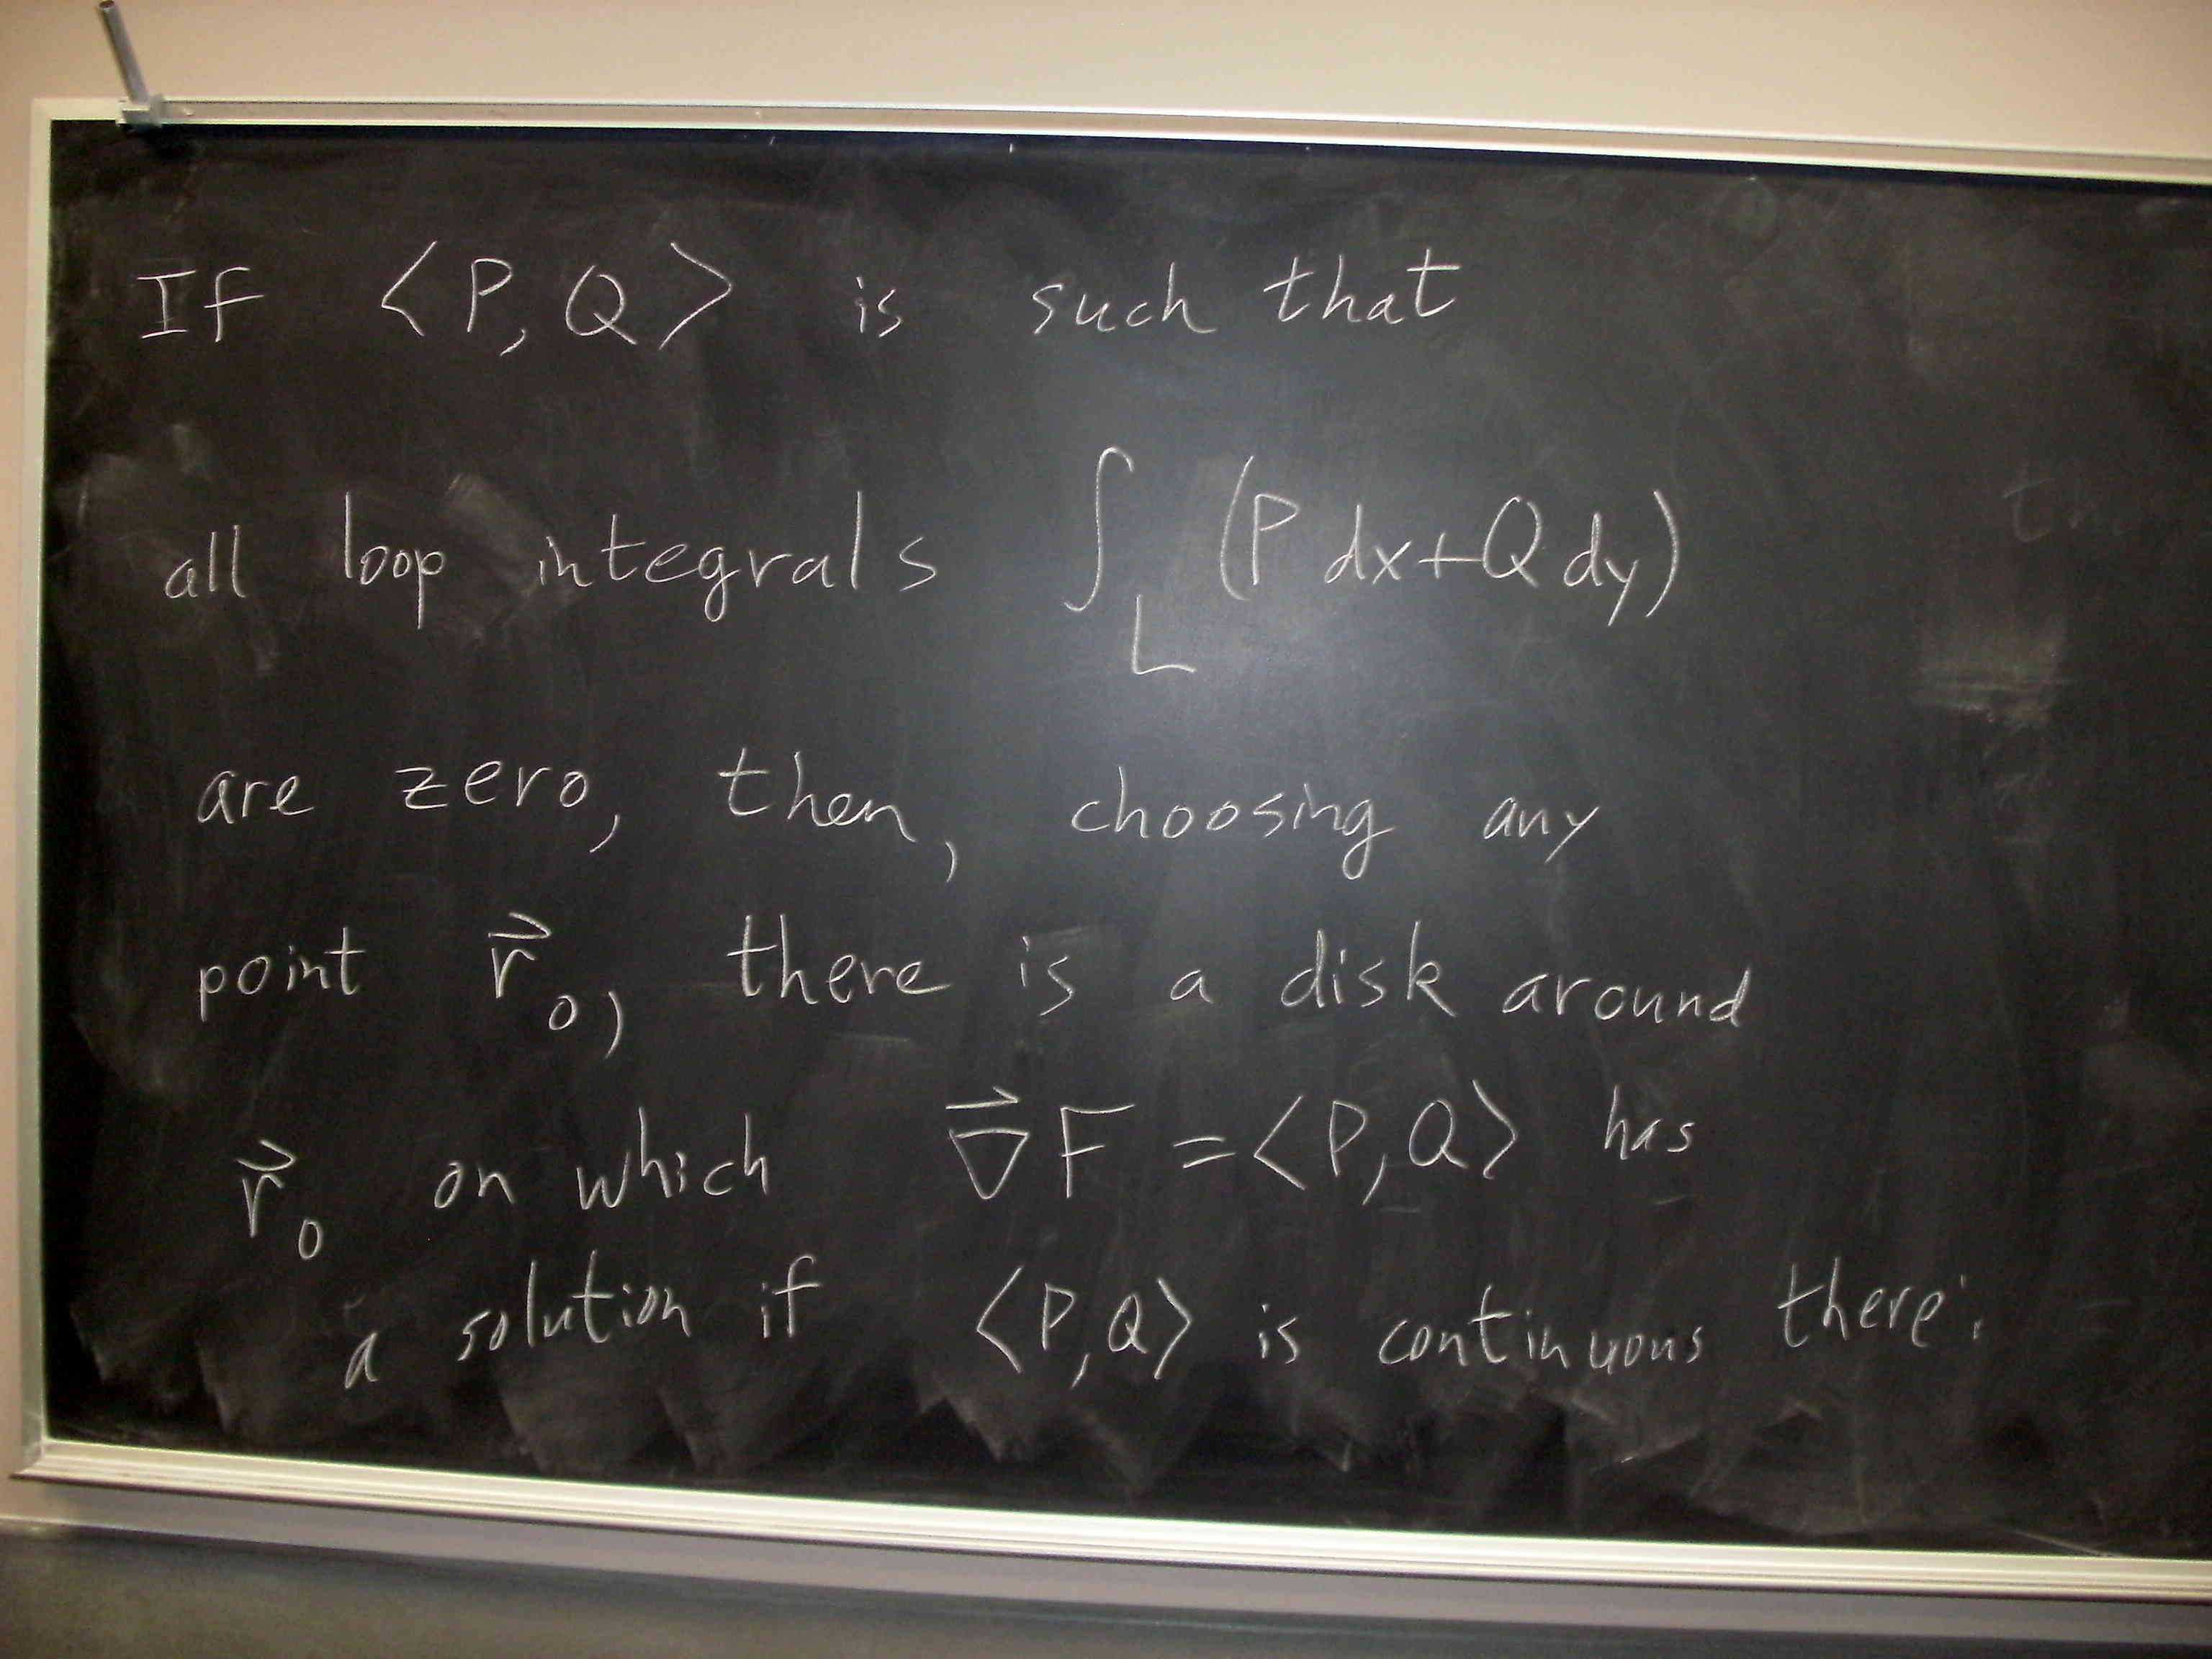 If ⟨P, Q⟩ is such that
all loop integrals ∫_L (P dx+Q dy)
are zero, then, choosing any
point r⃗₀, there is a disk around
r⃗₀ on which ∇⃗F = ⟨P, Q⟩ has
a solution if ⟨P, Q⟩ is continuous there.